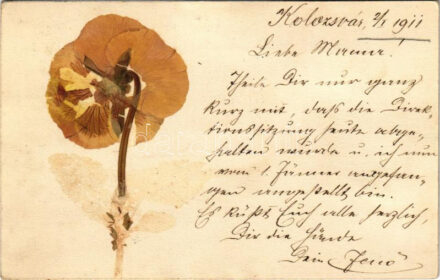 Kolozsvár, 2/I 1911
Liebe Mama!
Theile Dir nur ganz
kurz mit, daß die Direk-
tionssitzung heute abge-
halten wurde u. ich nun
vom 1. Jänner angefan-
gen angestellt bin.
Es küßt Euch alle herzlich,
Dir die Hände
Dein Jenö